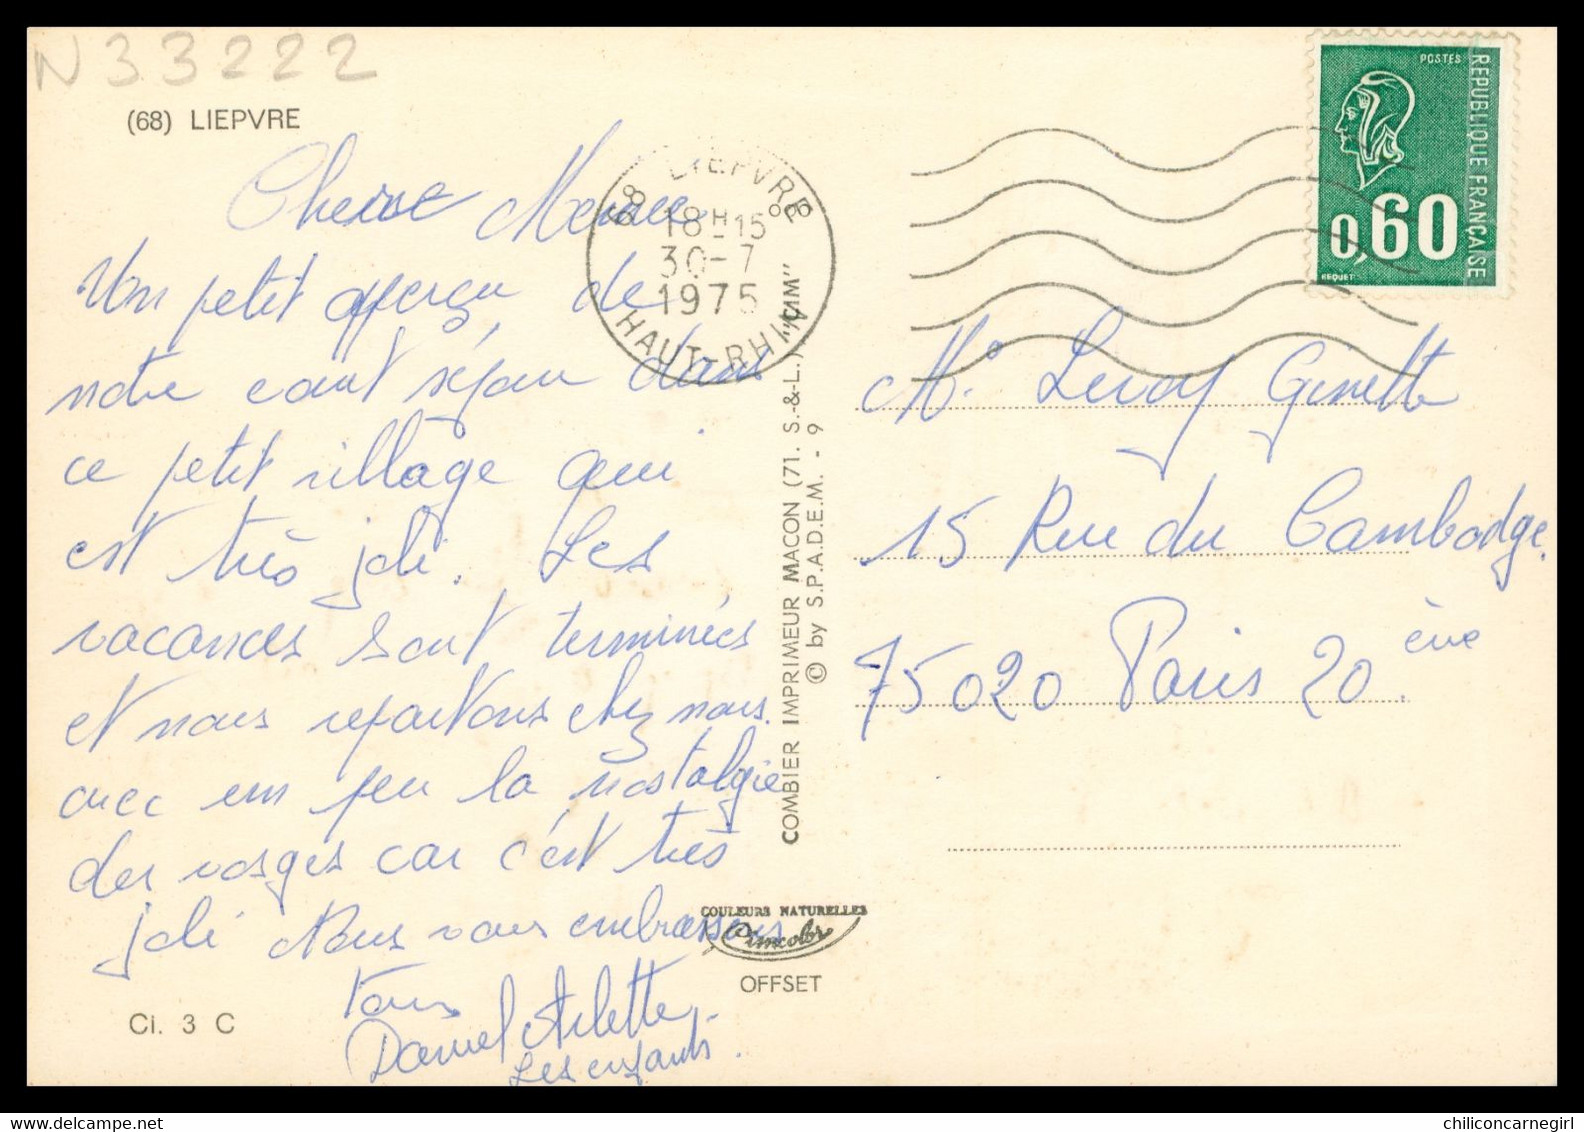 N33222
(68) LIEPVRE
68 LIEPVRE
18H15
30-7
1975
HAUT-RHIN
POSTES
REPUBLIQUE FRANÇAISE
0,60
BEQUET
Un petit apperçu de
notre court séjour dans
ce petit village qui
est très joli. Les
vacances sont terminées
et nous repartons chez nous
avec un peu la nostalgie
des vosges car c'est très
joli Nous vous embrassons
tous
Daniel Arlette
Les enfants.
COMBIER IMPRIMEUR MACON (71. S.-&-L.) "CIM"
© by S.P.A.D.E.M. - 9
COULEURS NATURELLES
Cimcolor
OFFSET
Ci. 3 C
Leroy Ginette
15 Rue du Cambodge.
75020 Paris 20 ème
delcampe.net
chiliconcarnegirl